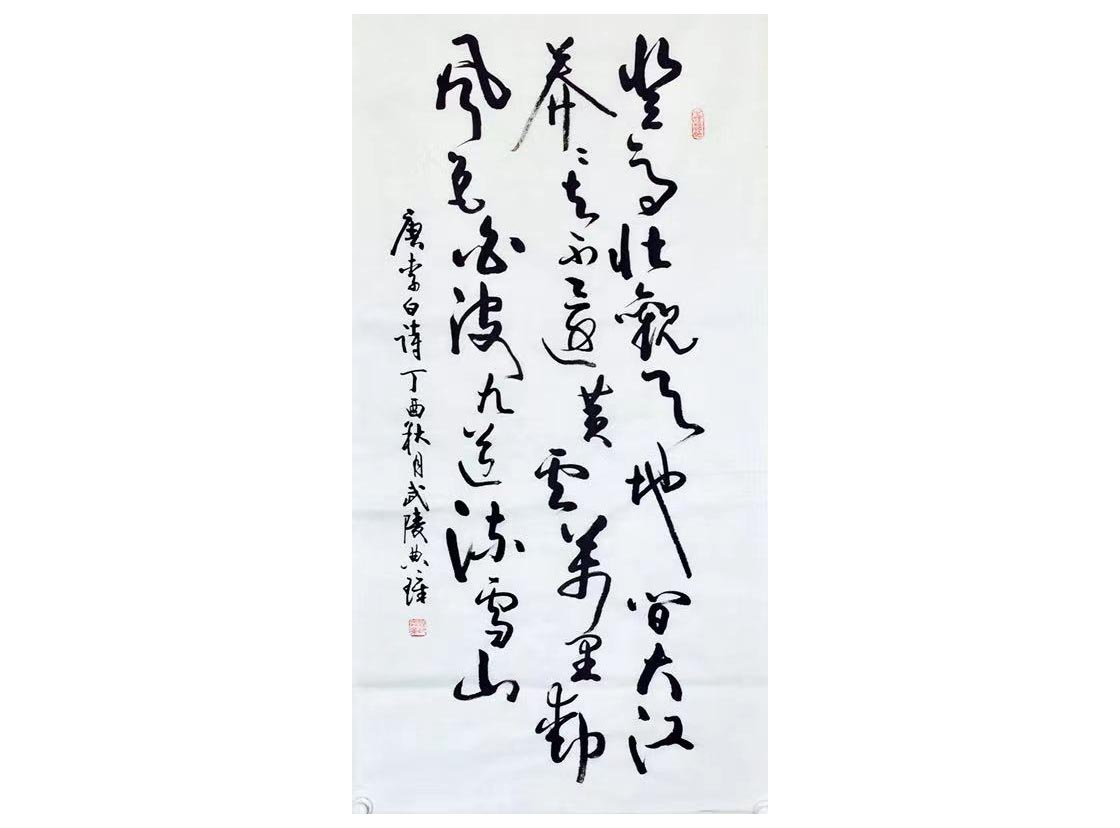 登高壮觀天地間大江
莽々去不還黄雲萬里動
風色白波九道流雪山
唐李白詩丁酉秋月武陵典璋